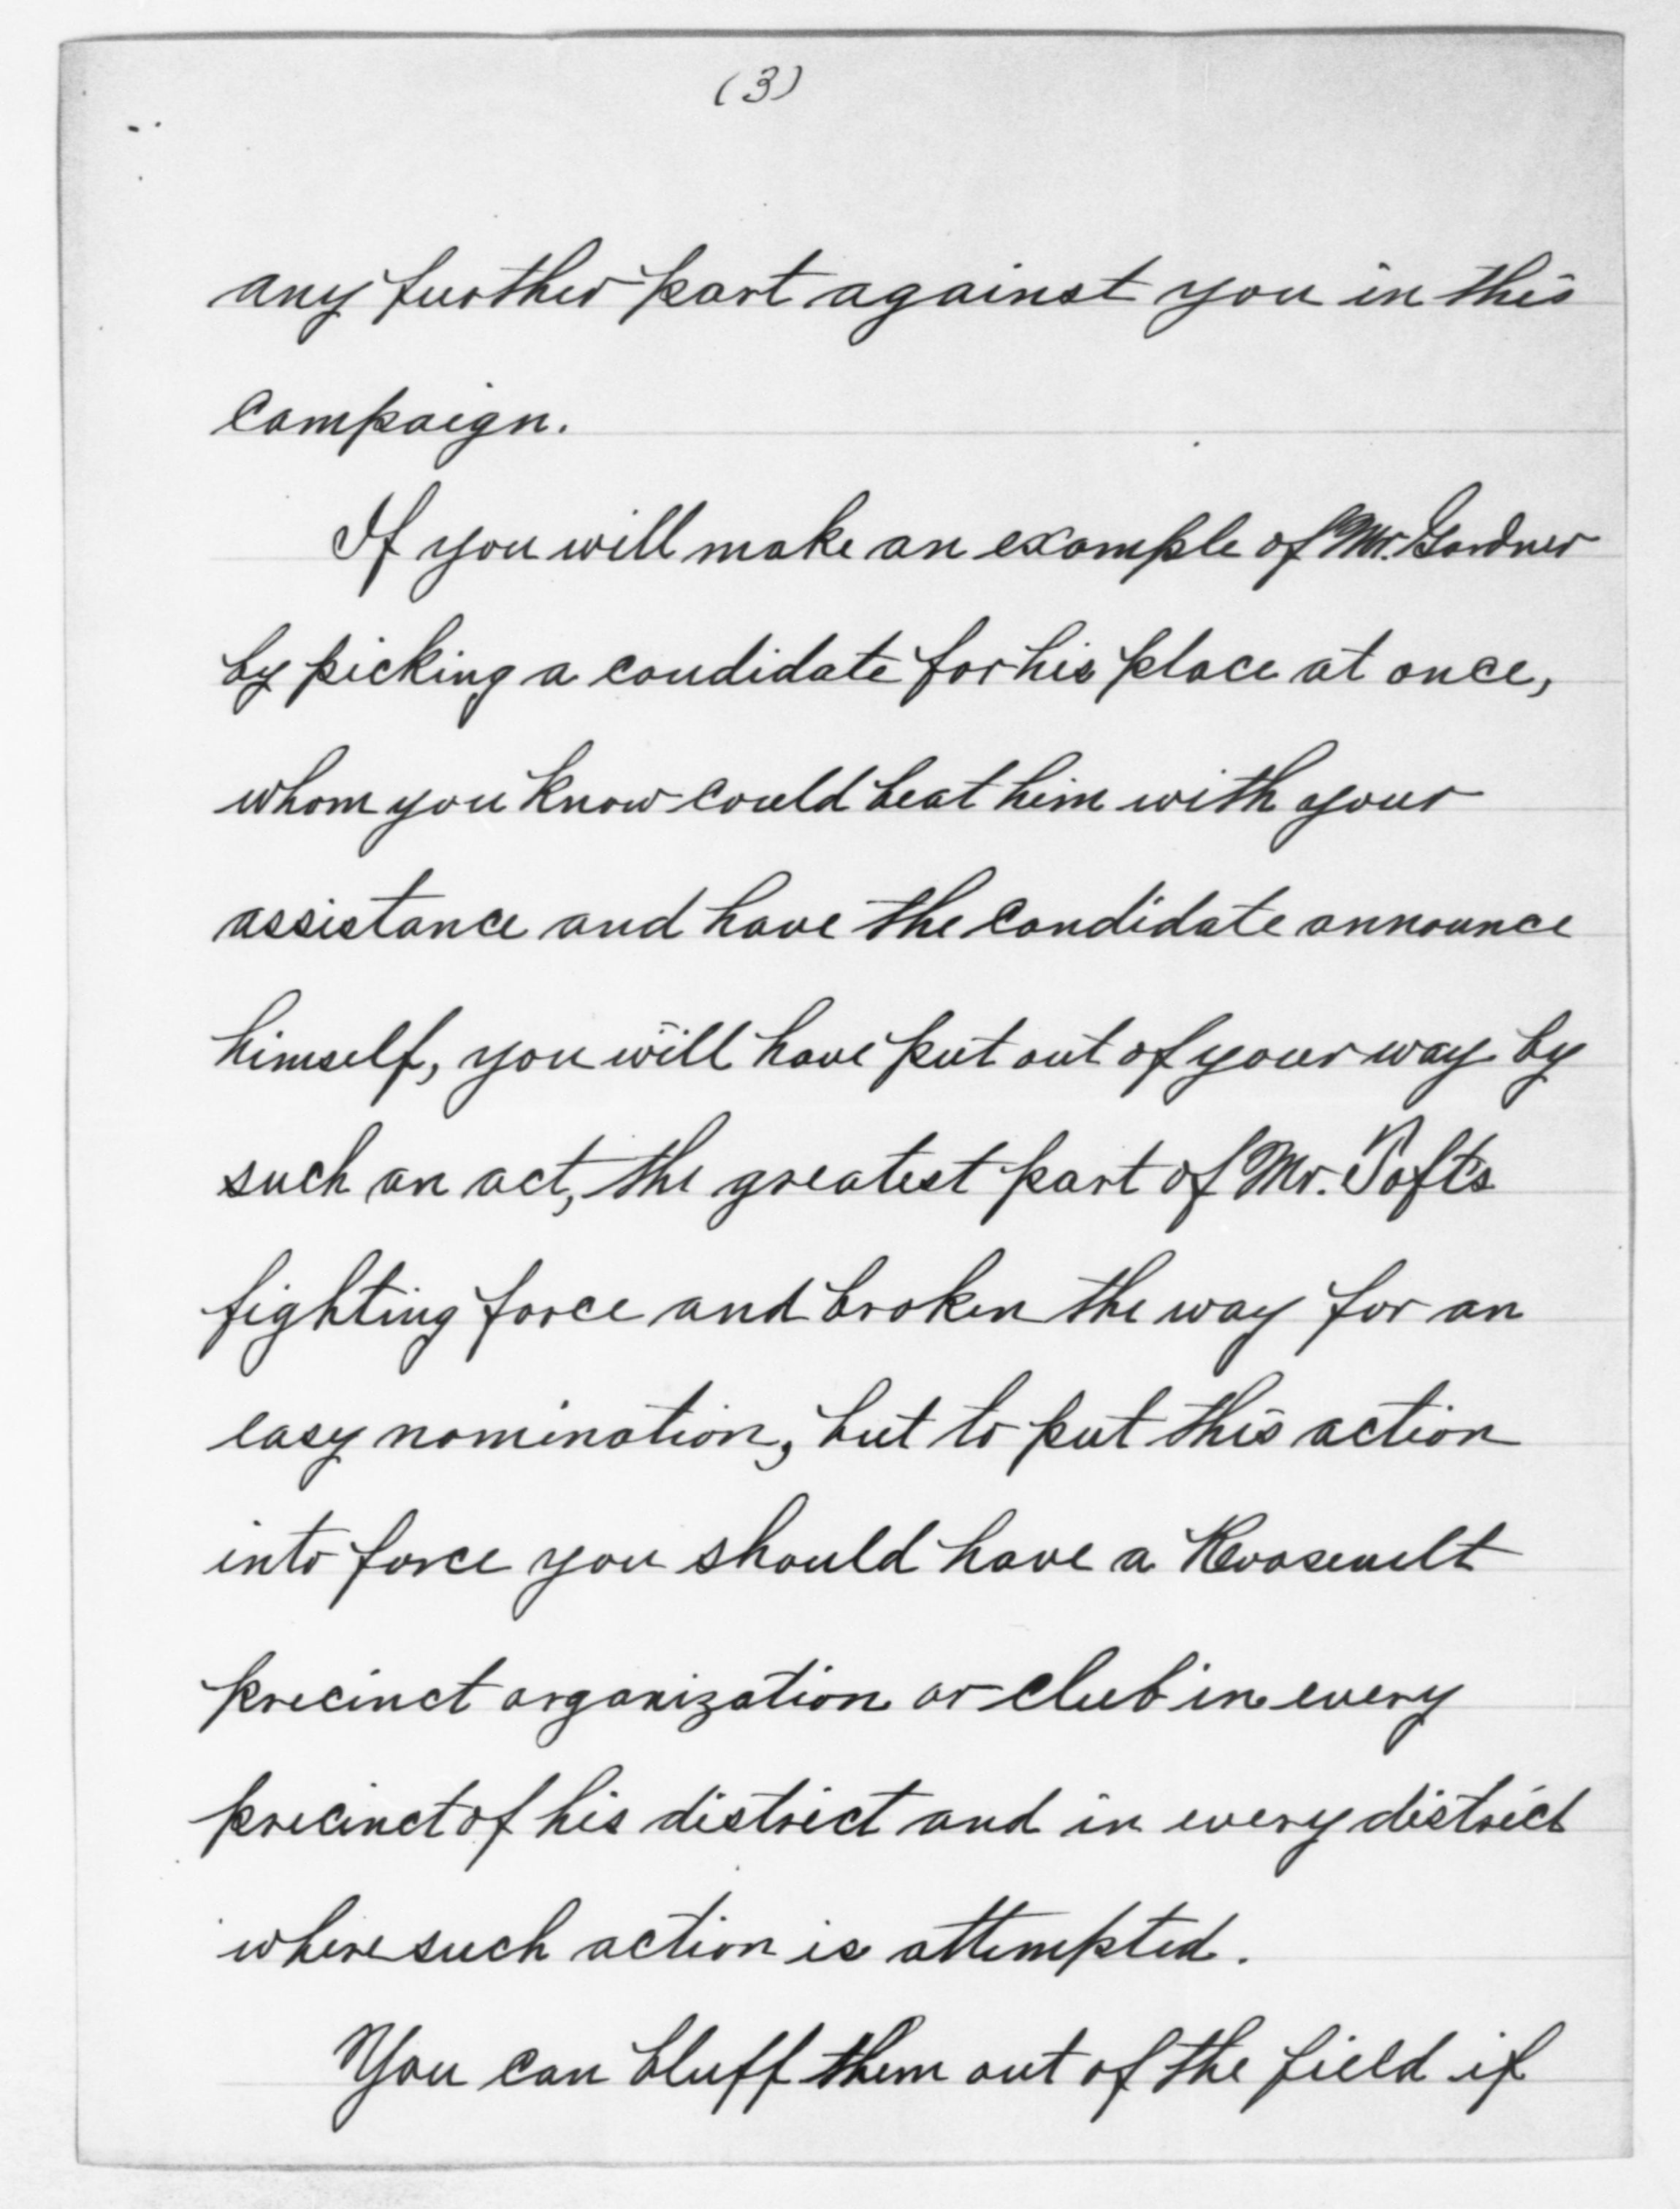 (3)
any further part against you in this
campaign.
If you will make an example of Mr. Gardner
by picking a candidate for his place at once,
whom you know could beat him with your
assistance and have the candidate announce
himself, you will have put out of your way by
such an act, the greatest part of Mr. Taft's
fighting force and broken the way for an
easy nomination, but to put this action
into force you should have a Roosevelt
precinct organization or club in every
precinct of his district and in every district
where such action is attempted.
You can bluff them out of the field if